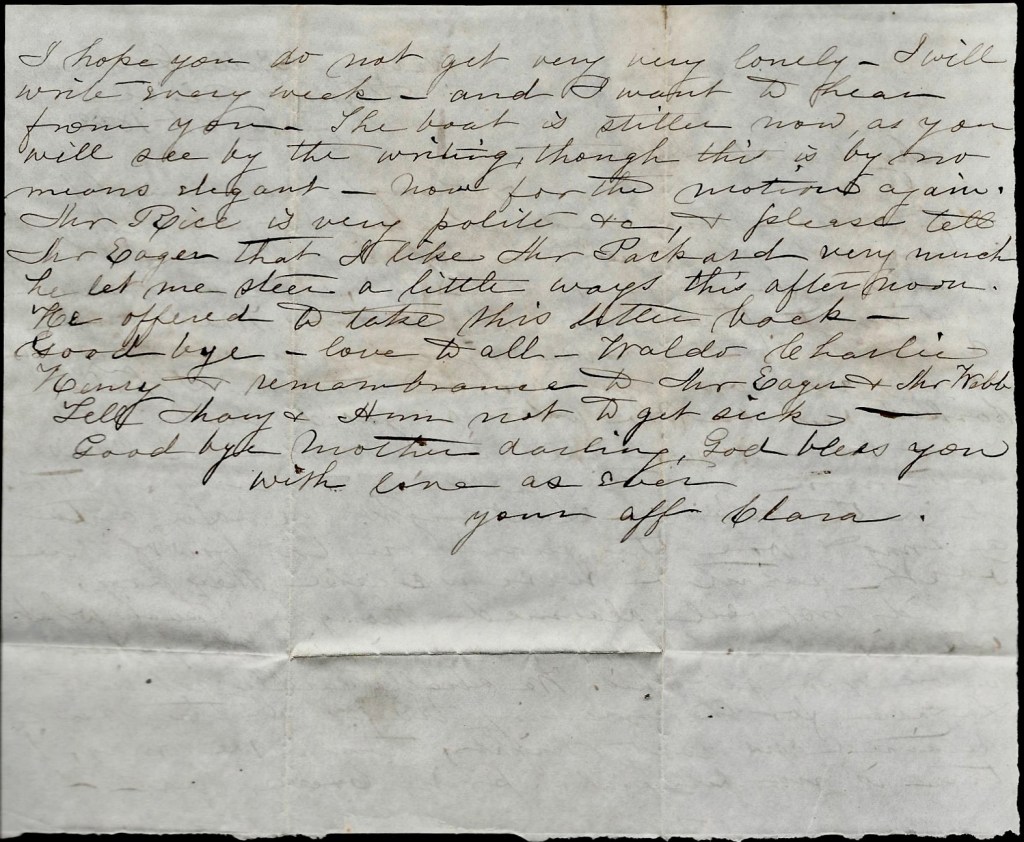 I hope you do not get very very lonely – I will
write every week – and I want to hear
from you – The boat is stiller now, as you
will see by the writing, though this is by no
means elegant – now for the motion again.
Mr Rice is very polite &c, & please tell
Mr Eager that I like Mr Packard very much
he let me steer a little ways this afternoon.
He offered to take this letter back –
Good bye – love to all – Waldo Charlie
Henry & remembrance to Mr Eager & Mr Webb
Tell & not to get sick –
Good bye Mother darling, God bless you
with love as ever
your aff Clara.